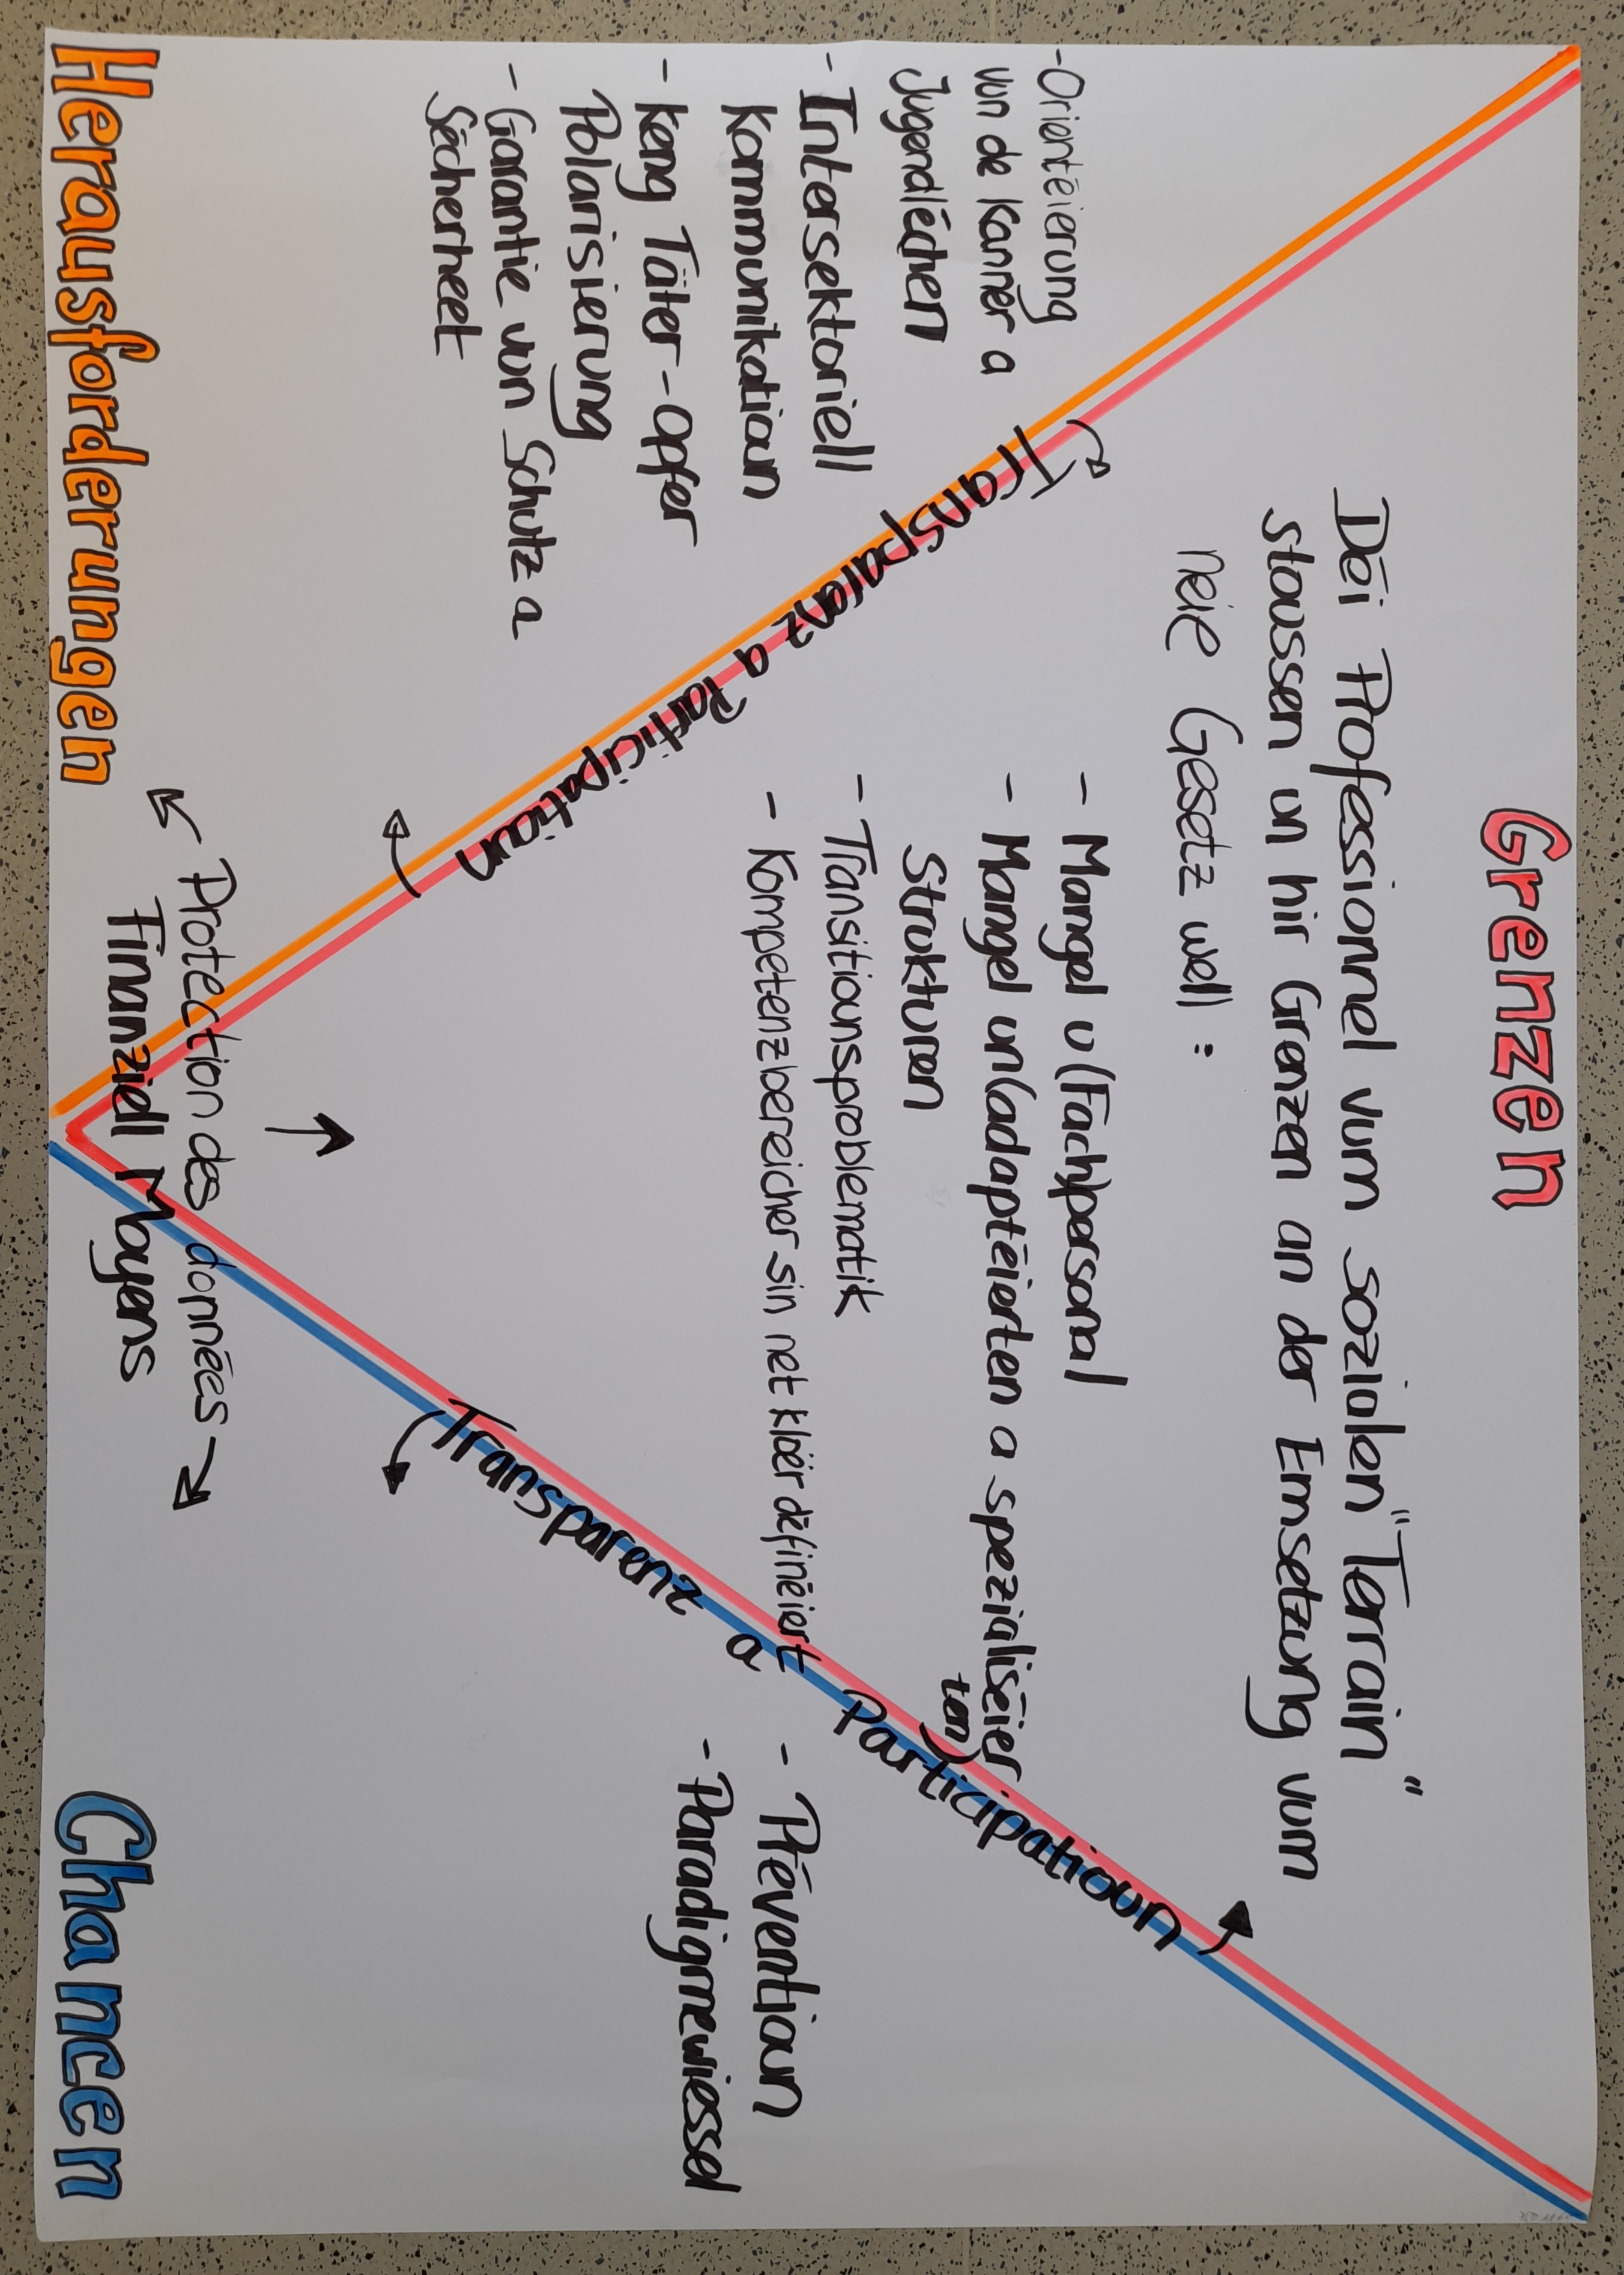 Grenzen
Déi Professionnel vum sozialen "Terrain"
stoussen un hir Grenzen an der Emsetzung vum
neie Gesetz well :
- Mangel u (Fach)personal
- Mangel un (adaptéierten a spezialiséier
ten)
Strukturen
- Transitiounsproblematik
- Kompetenzbereicher sin net kloër définéiert
-Orientéierung
vun de Kanner a
Jugendléchen
- Intersektoriell
Kommunikatioun
- Keng Täter-Opfer
Polarisierung
- Garantie vun Schutz a
Sécherheet
Transparenz a Participatioun
Transparenz a Participatioun
- Préventioun
- Paradigmewiessel
Protection des données
Finanziell Moyens
Herausforderungen
Chancen